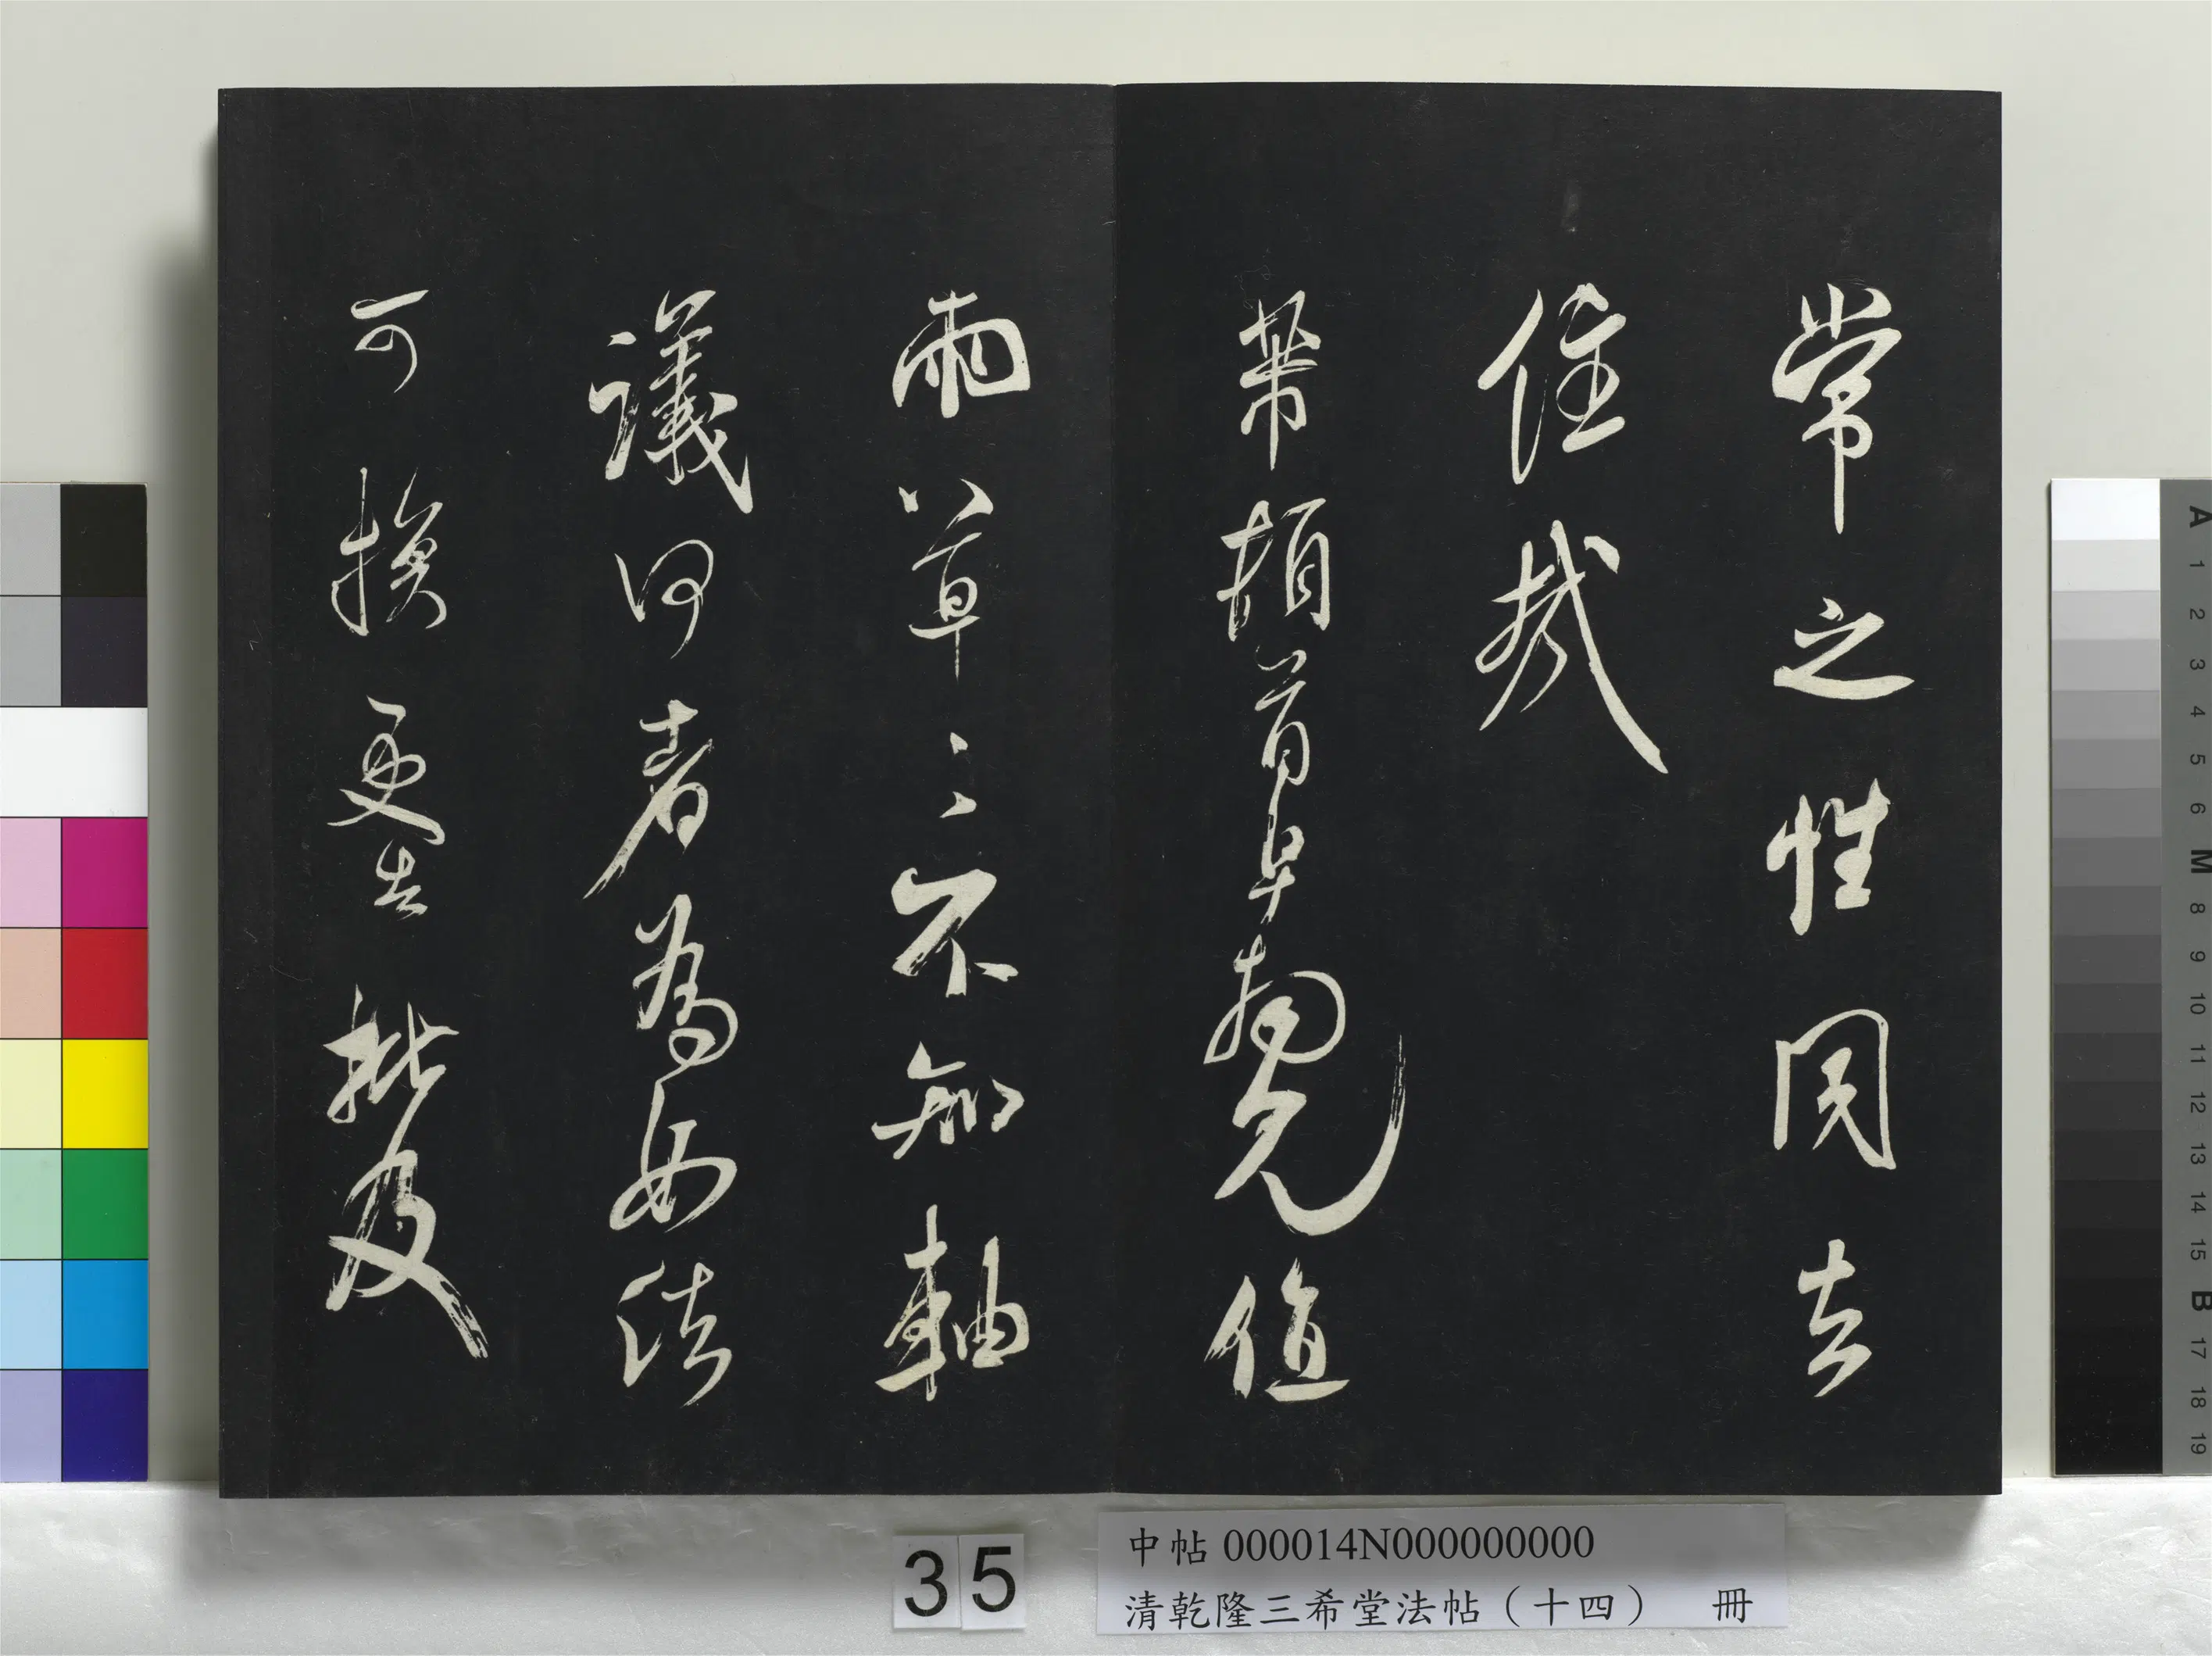 常之性同去
住哉
芾頓首早值
雨草〻不知軸
議何者為如法
可換更告批及
35
中帖 000014N000000000
清乾隆三希堂法帖（十四） 冊
A 1 2 3 4 5 6 M 8 9 10 11 12 13 14 15 B 17 18 19